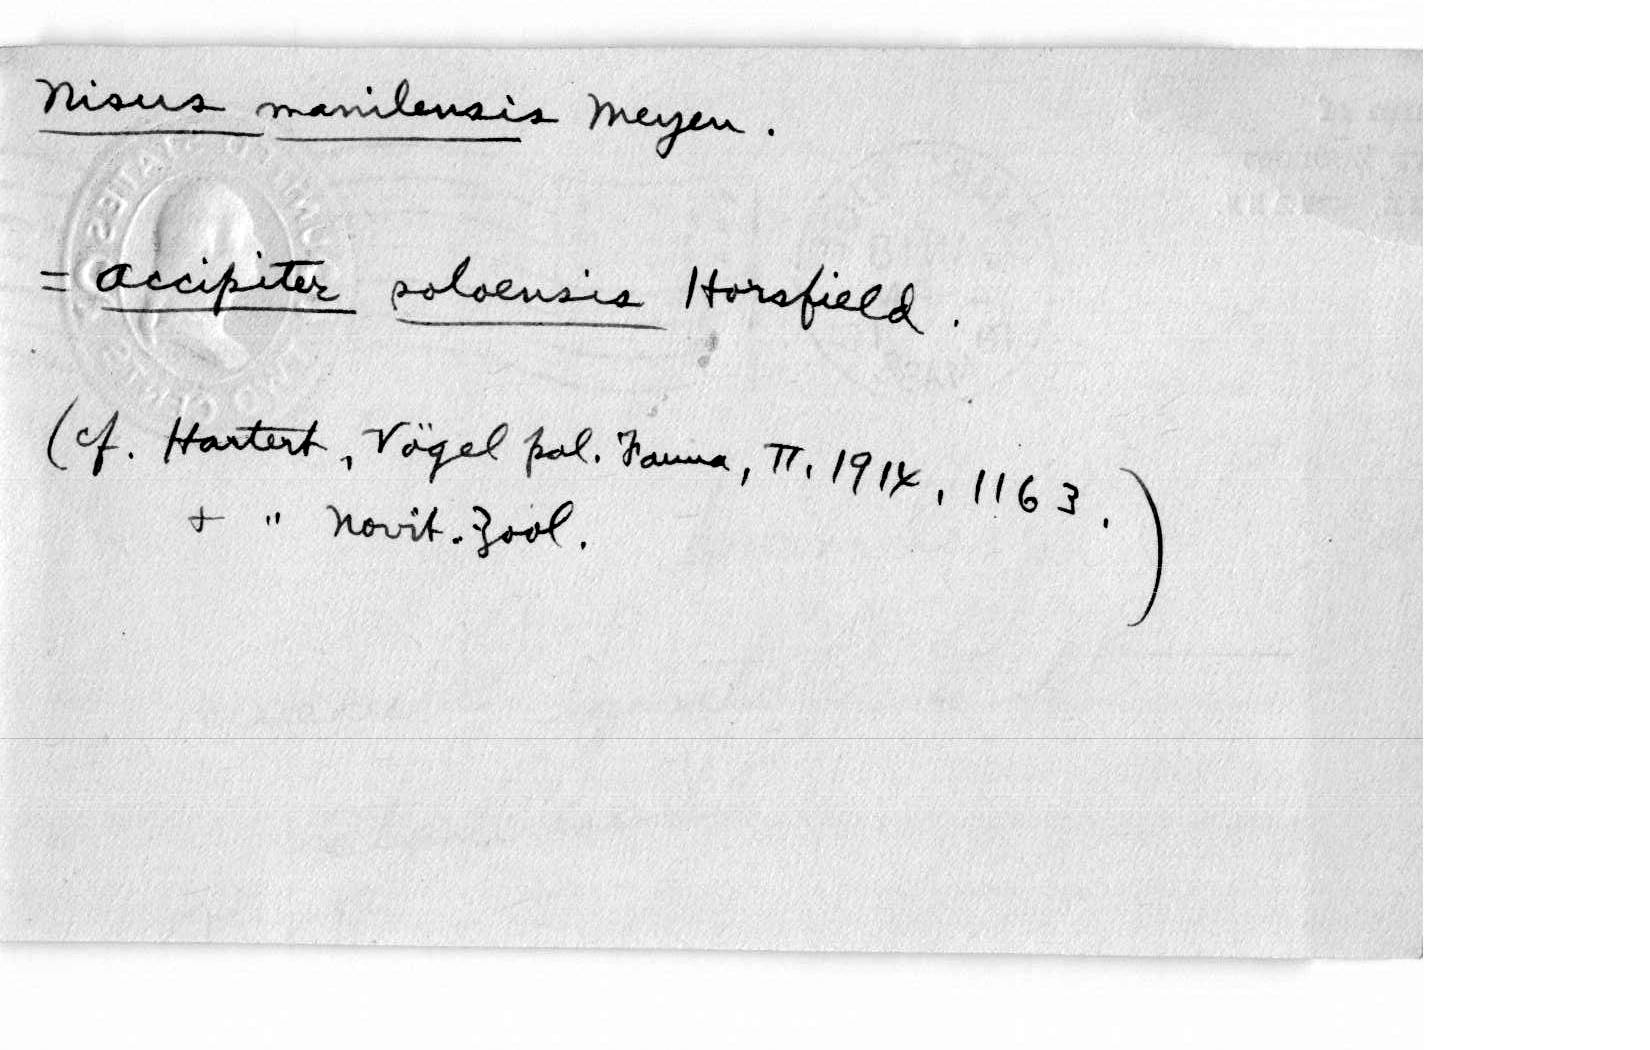 Nisus manilensis Meyen.
= Accipiter soloensis Horsfield.
(cf. Hartert, Vögel pal. Fauna, II, 1914, 1163.)
+ " Novit. Zool.